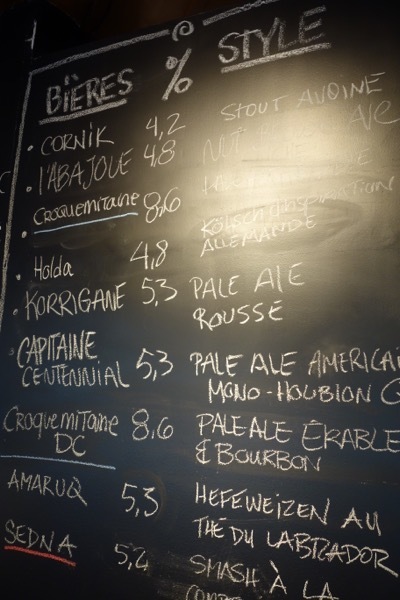 BIÈRES % STYLE
CORNIK 4,2 STOUT AVOINE
l'ABAJOUE 4,8
Croquemitaine 8,6
KÖLSCH
ALLEMANDE
Holda 4,8
KORRIGANE 5,3 PALE ALE
ROUSSE
CAPITAINE
CENTENNIAL 5,3 PALE ALE AMERICAI
MONO-HOUBLON
Croquemitaine
DC 8,6 PALE ALE ÉRABLE
& BOURBON
AMARUQ 5,3 HEFEWEIZEN AU
THÉ DU LABRADOR
SEDNA 5,2 SMASH À LA